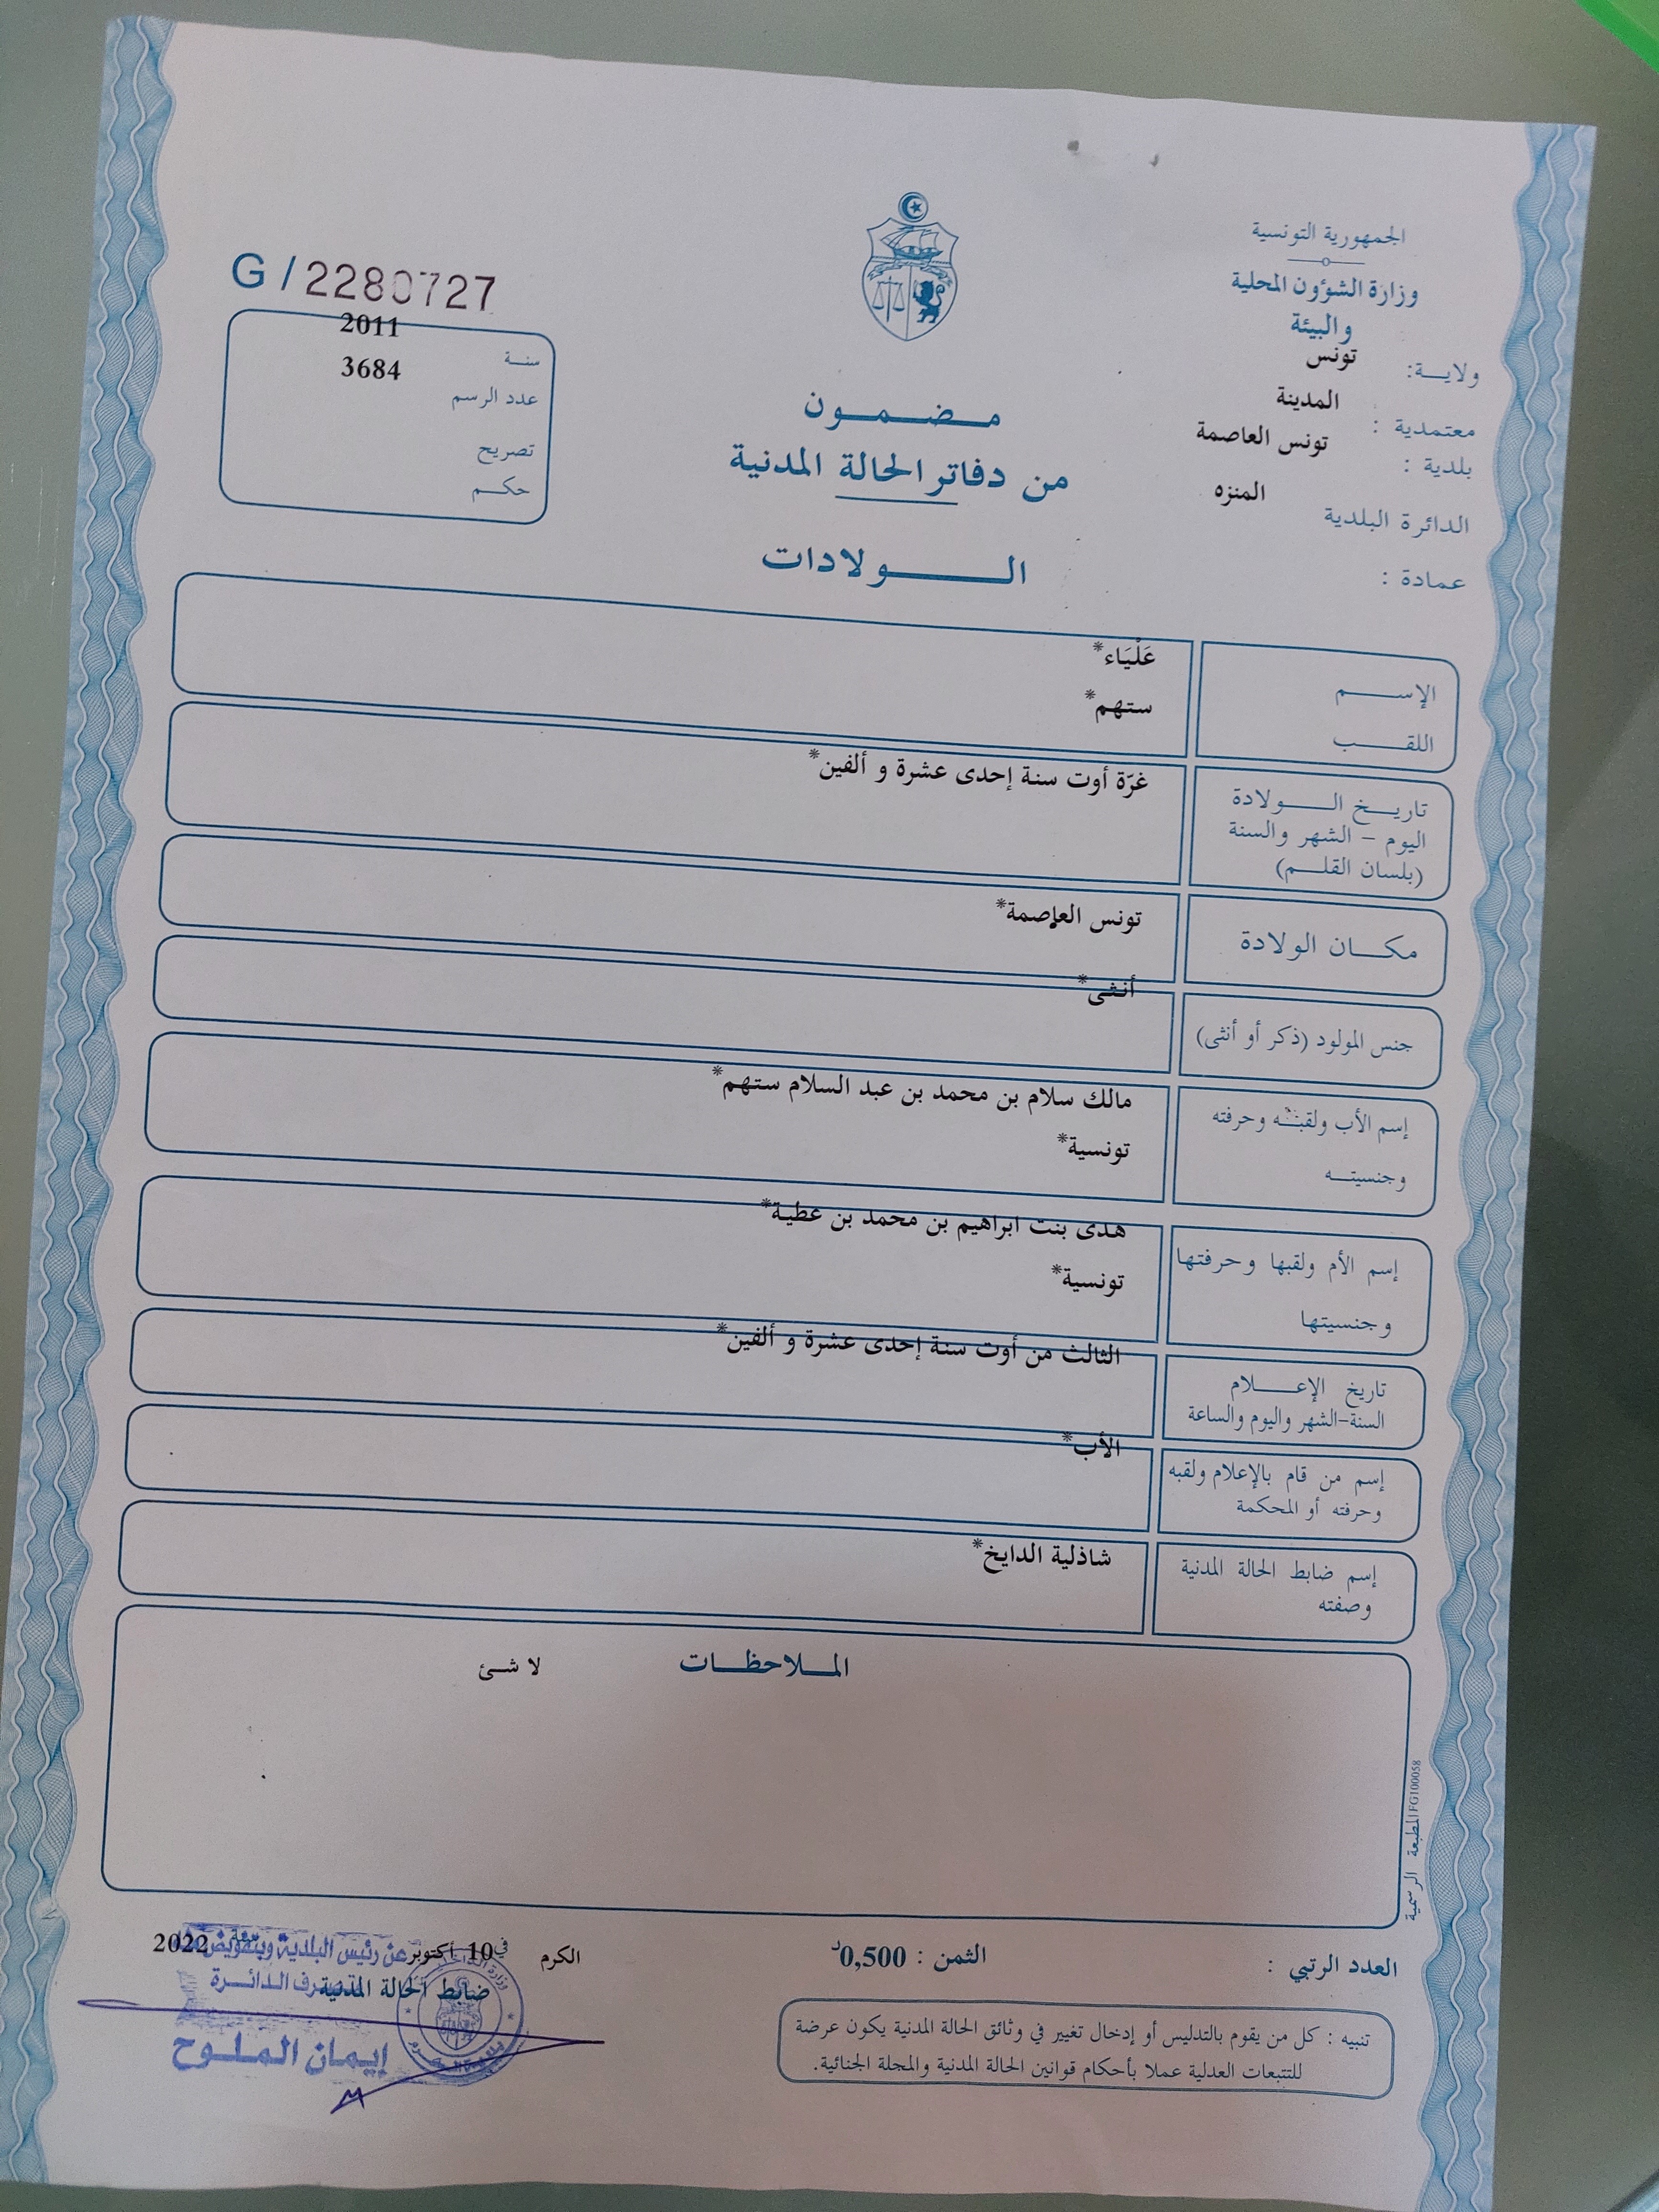 الجمهورية التونسية
وزارة الشؤون المحلية
والبيئة
ولايـــة: تونس
معتمدية : المدينة
بلدية : تونس العاصمة
الدائرة البلدية المنزه
عمادة :
G / 2280727
سنــة 2011
عدد الرسم 3684
تصريح
حكــم
مـــضـــمـــون
من دفاتر الحالة المدنية
الـــــــولادات
الإســـــم عَلْيَاء*
اللقـــــب ستهم*
تاريــخ الــــولادة غرّة أوت سنة إحدى عشرة و ألفين*
اليوم – الشهر والسنة
(بلسان القلـــم)
مكـــان الولادة تونس العاصمة*
جنس المولود (ذكر أو أنثى) أنثى*
إسم الأب ولقبــه وحرفته مالك سلام بن محمد بن عبد السلام ستهم*
وجنسيتــه تونسية*
إسم الأم ولقبها وحرفتها هدى بنت ابراهيم بن محمد بن عطية*
وجنسيتها تونسية*
تاريخ الإعــــلام الثالث من أوت سنة إحدى عشرة و ألفين*
السنة-الشهر واليوم والساعة
إسم من قام بالإعلام ولقبه الأب*
وحرفته أو المحكمة
إسم ضابط الحالة المدنية شاذلية الدايخ*
وصفته
المــلاحظــات لا شئ
المطبعة الرسمية FG100058
العدد الرتبي :
الثمن : 0,500د
الكرم في 10 أكتوبر سنة 2022
عن رئيس البلدية وبتفويض منه
ضابط الحالة المدنية
الدائـــرة
إيمان الملـوح
تنبيه : كل من يقوم بالتدليس أو إدخال تغيير في وثائق الحالة المدنية يكون عرضة
للتتبعات العدلية عملا بأحكام قوانين الحالة المدنية والمجلة الجنائية.